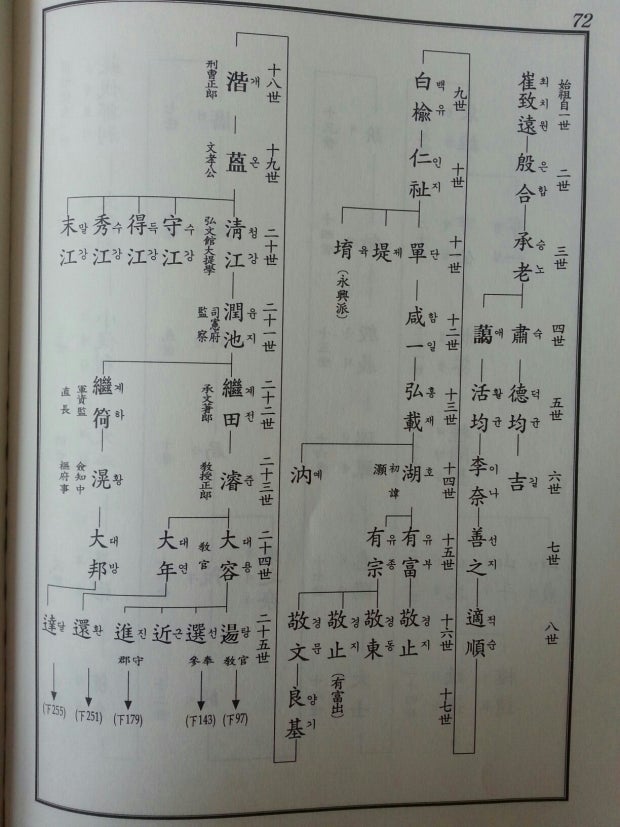 72
始祖自一世
崔致遠
최치원
二世
殷合
은함
三世
承老
승노
四世
肅 숙
藹 애
五世
德均
덕균
活均
활균
六世
吉 길
李奈
이나
七世
善之
선지
八世
適順
적순
九世
白楡
백유
十世
仁祉
인지
十一世
單 단
堤 제
堉 육
(永興派)
十二世
咸一
함일
十三世
弘載
홍재
十四世
湖 호
初諱
灝
汭 예
十五世
有富
유부
有宗
유종
十六世
敬止
경지
敬東
경동
敬止
경지
(有富出)
敬文
경문
十七世
良基
양기
十八世
湝 개
刑曹正郎
十九世
蘊 온
文孝公
二十世
淸江
청강
弘文館大提學
守江
수강
得江
득강
秀江
수강
末江
말강
二十一世
潤池
윤지
司憲府
監察
二十二世
繼田
계전
承文著郎
繼荷
계하
軍資監
直長
二十三世
濬 준
教授正郎
滉 황
僉知中
樞府事
二十四世
大容
대용
教官
大年
대연
大邦
대망
二十五世
湯 탕
教官
(下97)
選 선
參奉
(下143)
近 근
進 진
郡守
(下179)
還 환
(下251)
達 달
(下255)